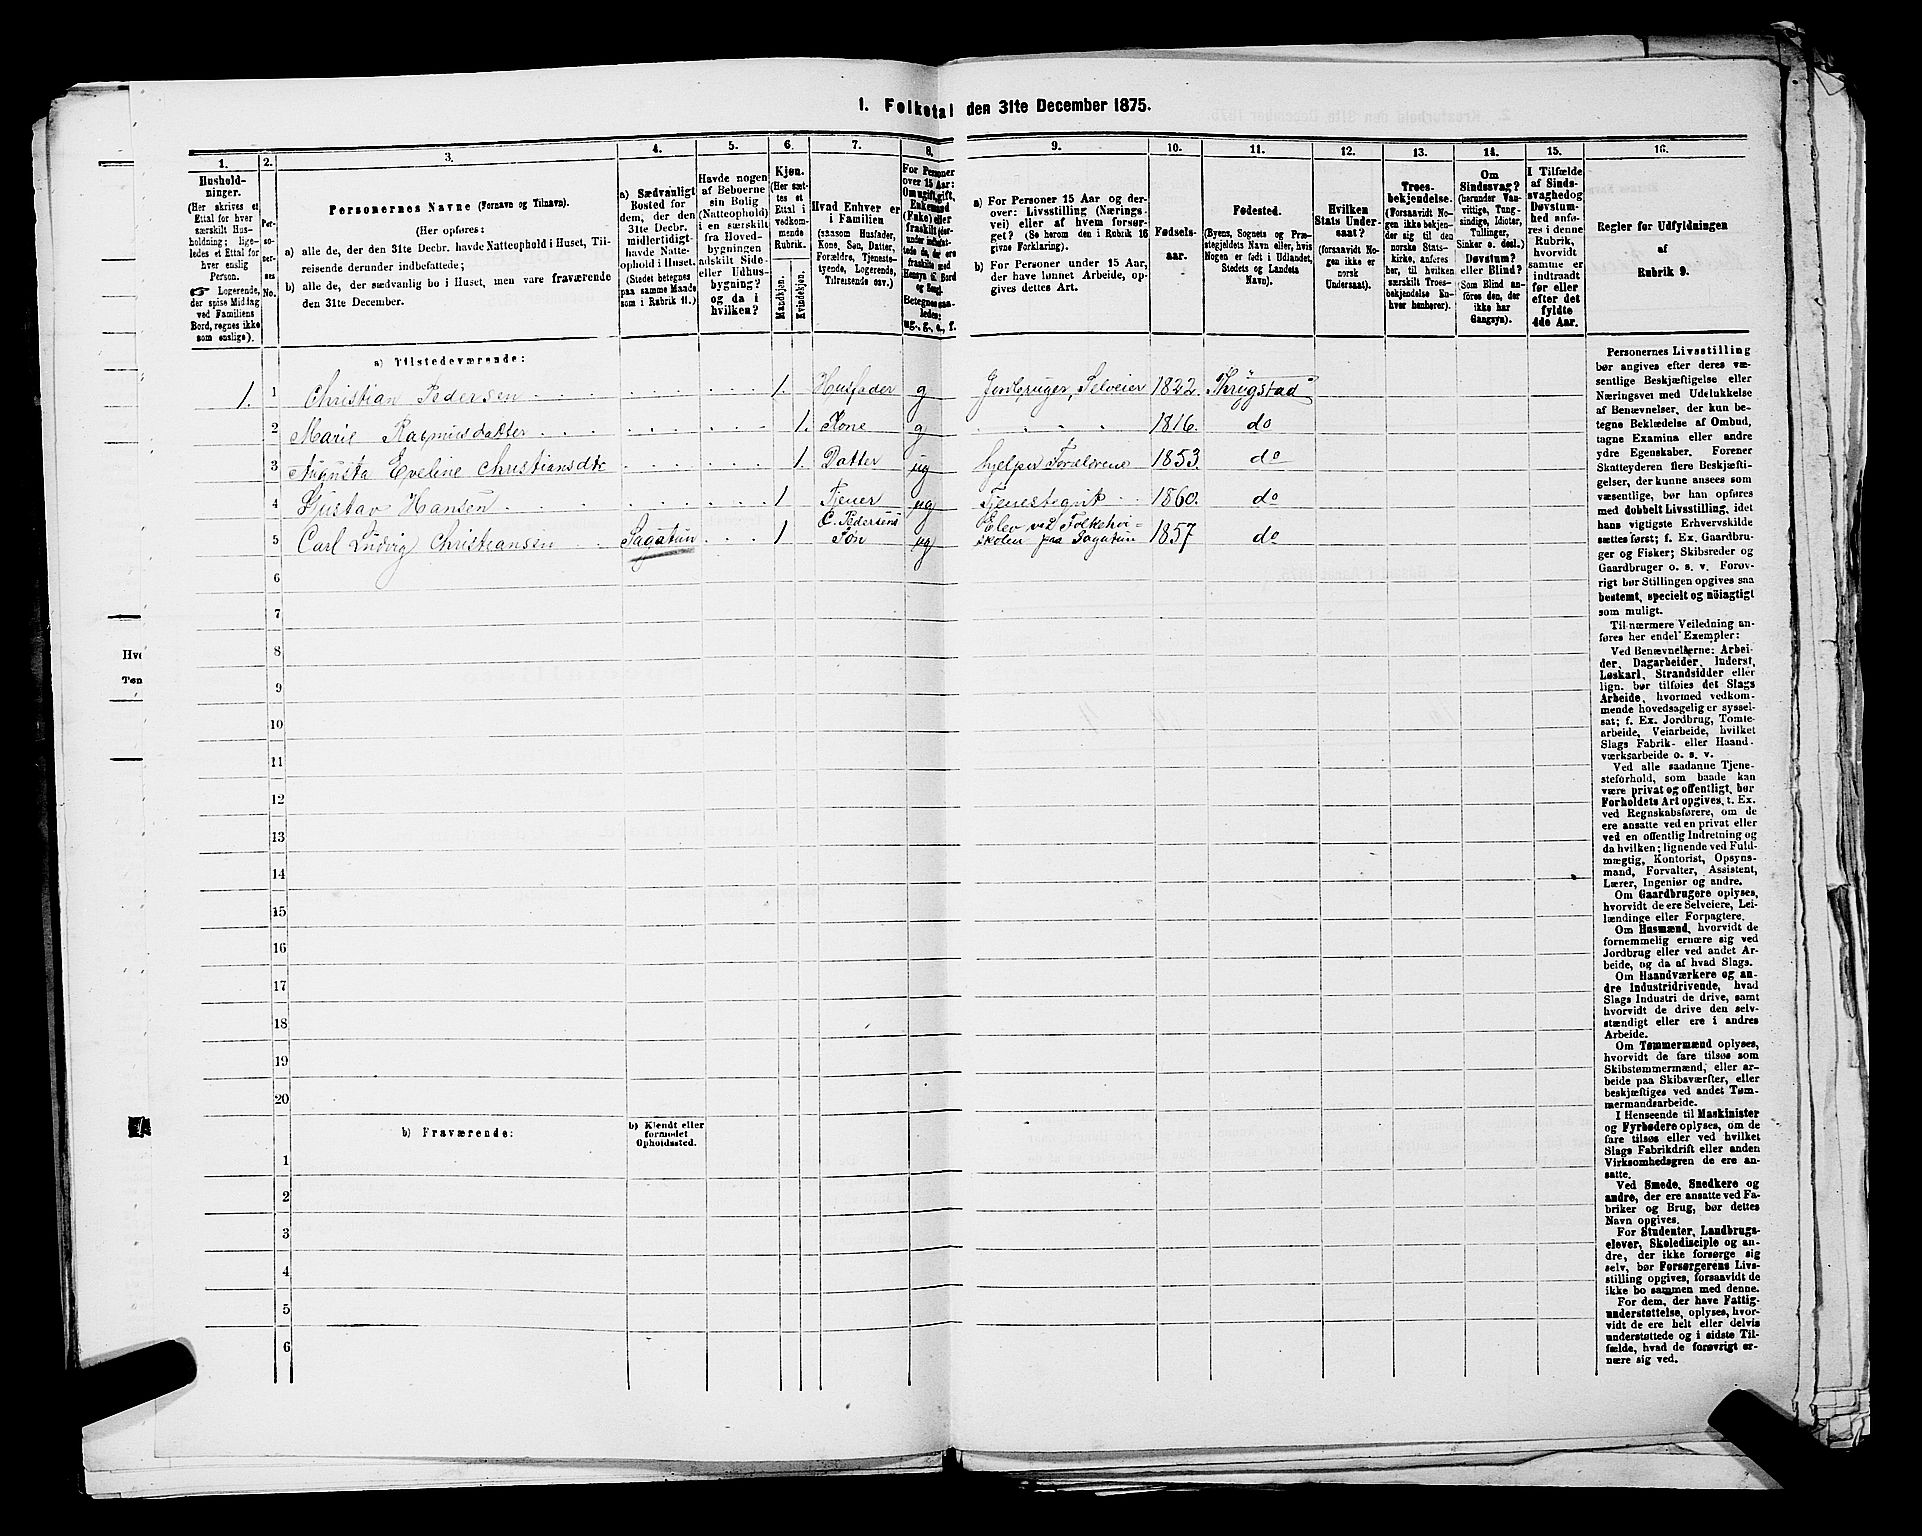 1. Folketal den 31te December 1875.
1. 2. 3. 4. 5. 6. 7. 8. 9. 10. 11. 12. 13. 14. 15. 16.
Hushold-
ninger.
(Her skrives et
Ettal for hver
særskilt Hus-
holdning; lige-
ledes et Ettal for
hver enslig
Person.
☞ Logerende,
der spise Middag
ved Familiens
Bord, regnes ikke
som enslige).
Per-
so-
ner-
nes
No.
Personernes Navne (Fornavn og Tilnavn).
(Her opføres:
a) alle de, der den 31te Decbr. havde Natteophold i Huset, Til-
reisende derunder indbefattede;
b) alle de, der sædvanlig bo i Huset, men vare fraværende
den 31te December.
a) Sædvanligt
Bosted for
dem, der den
31te Decbr.
midlertidigt
havde Natte-
ophold i Huset.
(Stedet betegnes
paa samme Maade
som i Rubrik 11.)
Havde nogen
af Beboerne
sin Bolig
(Natteophold)
i en særskilt
fra Hoved-
bygningen
adskilt Side-
eller Udhus-
bygning?
og da i
hvilken?
Kjøn.
(Her sæt-
tes et
Ettal i
vedkom-
mende
Rubrik.
Mandkjøn.
Kvindekjøn.
Hvad Enhver er
i Familien
(saasom Husfader,
Kone, Søn, Datter,
Forældre, Tjeneste-
tyende, Logerende,
Tilreisende osv.)
For Personer
over 15 Aar:
Om ugift, gift,
Enkemand
(Enke) eller
fraskilt
Betegnes saa-
ledes:
ug., g., e., f.
a) For Personer 15 Aar og der-
over: Livsstilling (Nærings-
vei) eller af hvem forsør-
get? (Se herom den i Rubrik 16
givne Forklaring).
b) For Personer under 15 Aar,
der have lønnet Arbeide, op-
gives dettes Art.
Fødsels-
aar.
Fødested.
(Byens, Sognets og Præ-
stegjeldets Navn eller, hvis
Nogen er født i Udlandet,
Stedets og Landets
Navn).
Hvilken
Stats Under-
saat?
(forsaavidt No-
gen ikke er
norsk
Undersaat).
Troes-
bekjendelse.
(Forsaavidt No-
gen ikke bekjen-
der sig til den
norske Stats-
kirke, anføres
her, til hvilken
særskilt Troes-
bekjendelse En-
hver henhører).
Om
Sindssvag?
(herunder Van-
vittige, Tung-
sindige, Idioter,
Tullinger,
Sinker o. desl.)
Døvstum?
eller Blind?
(Som Blind an-
føres den, der
ikke har
Gangsyn).
I Tilfælde
af Sinds-
svaghed og
Døvstum-
hed anfø-
res i denne
Rubrik,
hvorvidt
samme er
indtraadt
før eller
efter det
fyldte
4de Aar.
Regler for Udfyldningen
af
Rubrik 9.
a) Tilstedeværende:
1. 1 Christian Pedersen 1. Husfader g Jordbruger, Selveier 1822. Thrygstad
2 Marie Rasmusdatter 1. Kone g 1816. do
3 Augusta Eveline Christiansdtr 1. Datter ug hjelper Forældrene 1853. do
4 Gustav Hansen 1 Tjener ug Tjenestegut 1860. do
5 Carl Ludvig Christiansen Sagatun 1 C. Pedersens Søn ug Elev ved Folkehøi-
skolen paa Sagatun 1857 do
6
7
8
9
10
11
12
13
14
15
16
17
18
19
20
b) Fraværende:
b) Kjendt eller
formodet
Opholdssted.
1
2
3
4
5
6
Personernes Livsstilling
bør angives efter deres væ-
sentlige Beskjæftigelse eller
Næringsvei med Udelukkelse
af Benævnelser, der kun be-
tegne Beklædelse af Ombud,
tagne Examina eller andre
ydre Egenskaber. Forener
Skatteyderen flere Beskjæfti-
gelser, der kunne ansees som
væsentlige, bør han opføres
med dobbelt Livsstilling, idet
hans vigtigste Erhvervskilde
sættes først; f. Ex. Gaardbru-
ger og Fisker; Skibsreder og
Gaardbruger o. s. v. Forøv-
rigt bør Stillingen opgives saa
bestemt, specielt og nöiagtigt
som muligt.
Til nærmere Veiledning an-
føres her endel Exempler:
Ved Benævnelserne: Arbei-
der, Dagarbeider, Inderst,
Løskarl, Strandsidder eller
lign. bør tilføies det Slags
Arbeide, hvormed vedkom-
mende hovedsagelig er syssel-
sat; f. Ex. Jordbrug, Tomte-
arbeide, Veiarbeide, hvilket
Slags Fabrik- eller Haand-
værksarbeide o. s. v.
Ved alle saadanne Tjene-
steforhold, som baade kan
være privat og offentligt, bør
Forholdets Art opgives, t. Ex.
ved Regnskabsførere, om de
ere ansatte ved en privat eller
ved en offentlig Indretning og
da hvilken; lignende ved Fuld-
mægtig, Kontorist, Opsyns-
mand, Forvalter, Assistent,
Lærer, Ingeniør og andre.
Om Gaardbrugere oplyses,
hvorvidt de ere Selveiere, Lei-
lændinge eller Forpagtere.
Om Husmænd, hvorvidt de
fornemmelig ernære sig ved
Jordbrug eller ved andet Ar-
beide, og da af hvad Slags.
Om Haandværkere og an-
dre Industridrivende, hvad
Slags Industri de drive, samt
hvorvidt de drive den selv-
stændigt eller ere i andres
Arbeide.
Om Tømmermænd oplyses,
hvorvidt de fare tilsøs som
Skibstømmermænd, eller ar-
beide paa Skibsværfter, eller
beskjæftiges ved andet Tøm-
mermandsarbeide.
I Henseende til Maskinister
og Fyrbødere oplyses, om de
fare tilsøs eller ved hvilket
Slags Fabrikdrift eller anden
Virksomhedsgren de ere an-
satte.
Ved Smede, Snedkere og
andre, der ere ansatte ved Fa-
briker og Brug, bør dettes
Navn opgives.
For Studenter, Landbrugs-
elever, Skoledisciple og an-
dre, der ikke forsørge sig
selv, bør Forsørgerens Livs-
stilling opgives, forsaavidt de
ikke bo sammen med denne.
For dem, der have Fattig-
understøttelse, oplyses, hvor-
vidt de ere helt eller delvis
understøttede og i sidste Til-
fælde, hvad de forøvrigt er-
nære sig ved.